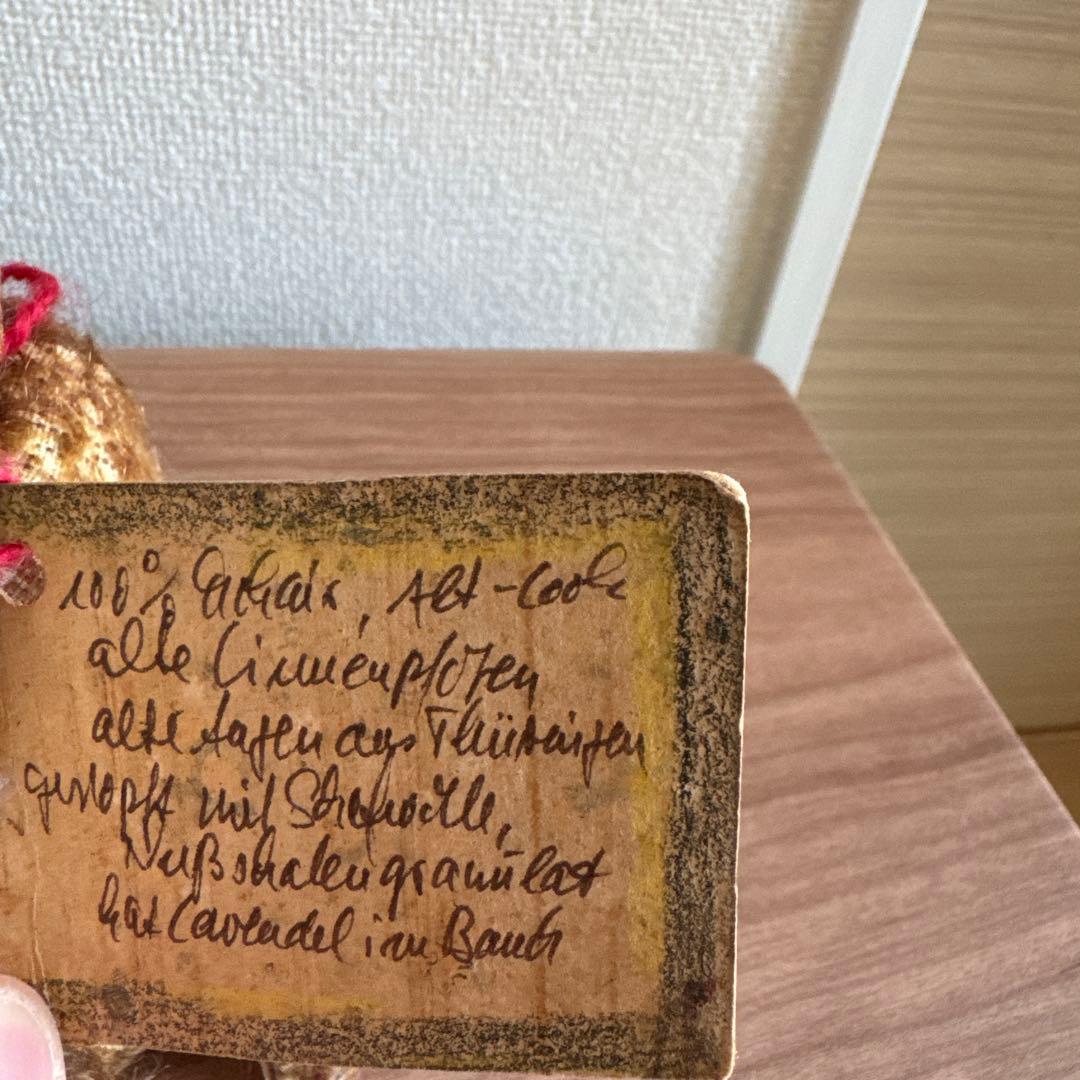 100% Mohair, Alt-Look
alte Linnenpfoten
alte Augen aus Thüringen
gestopft mit Schafwolle,
Nußschalengranulat
hat Lavendel im Bauch